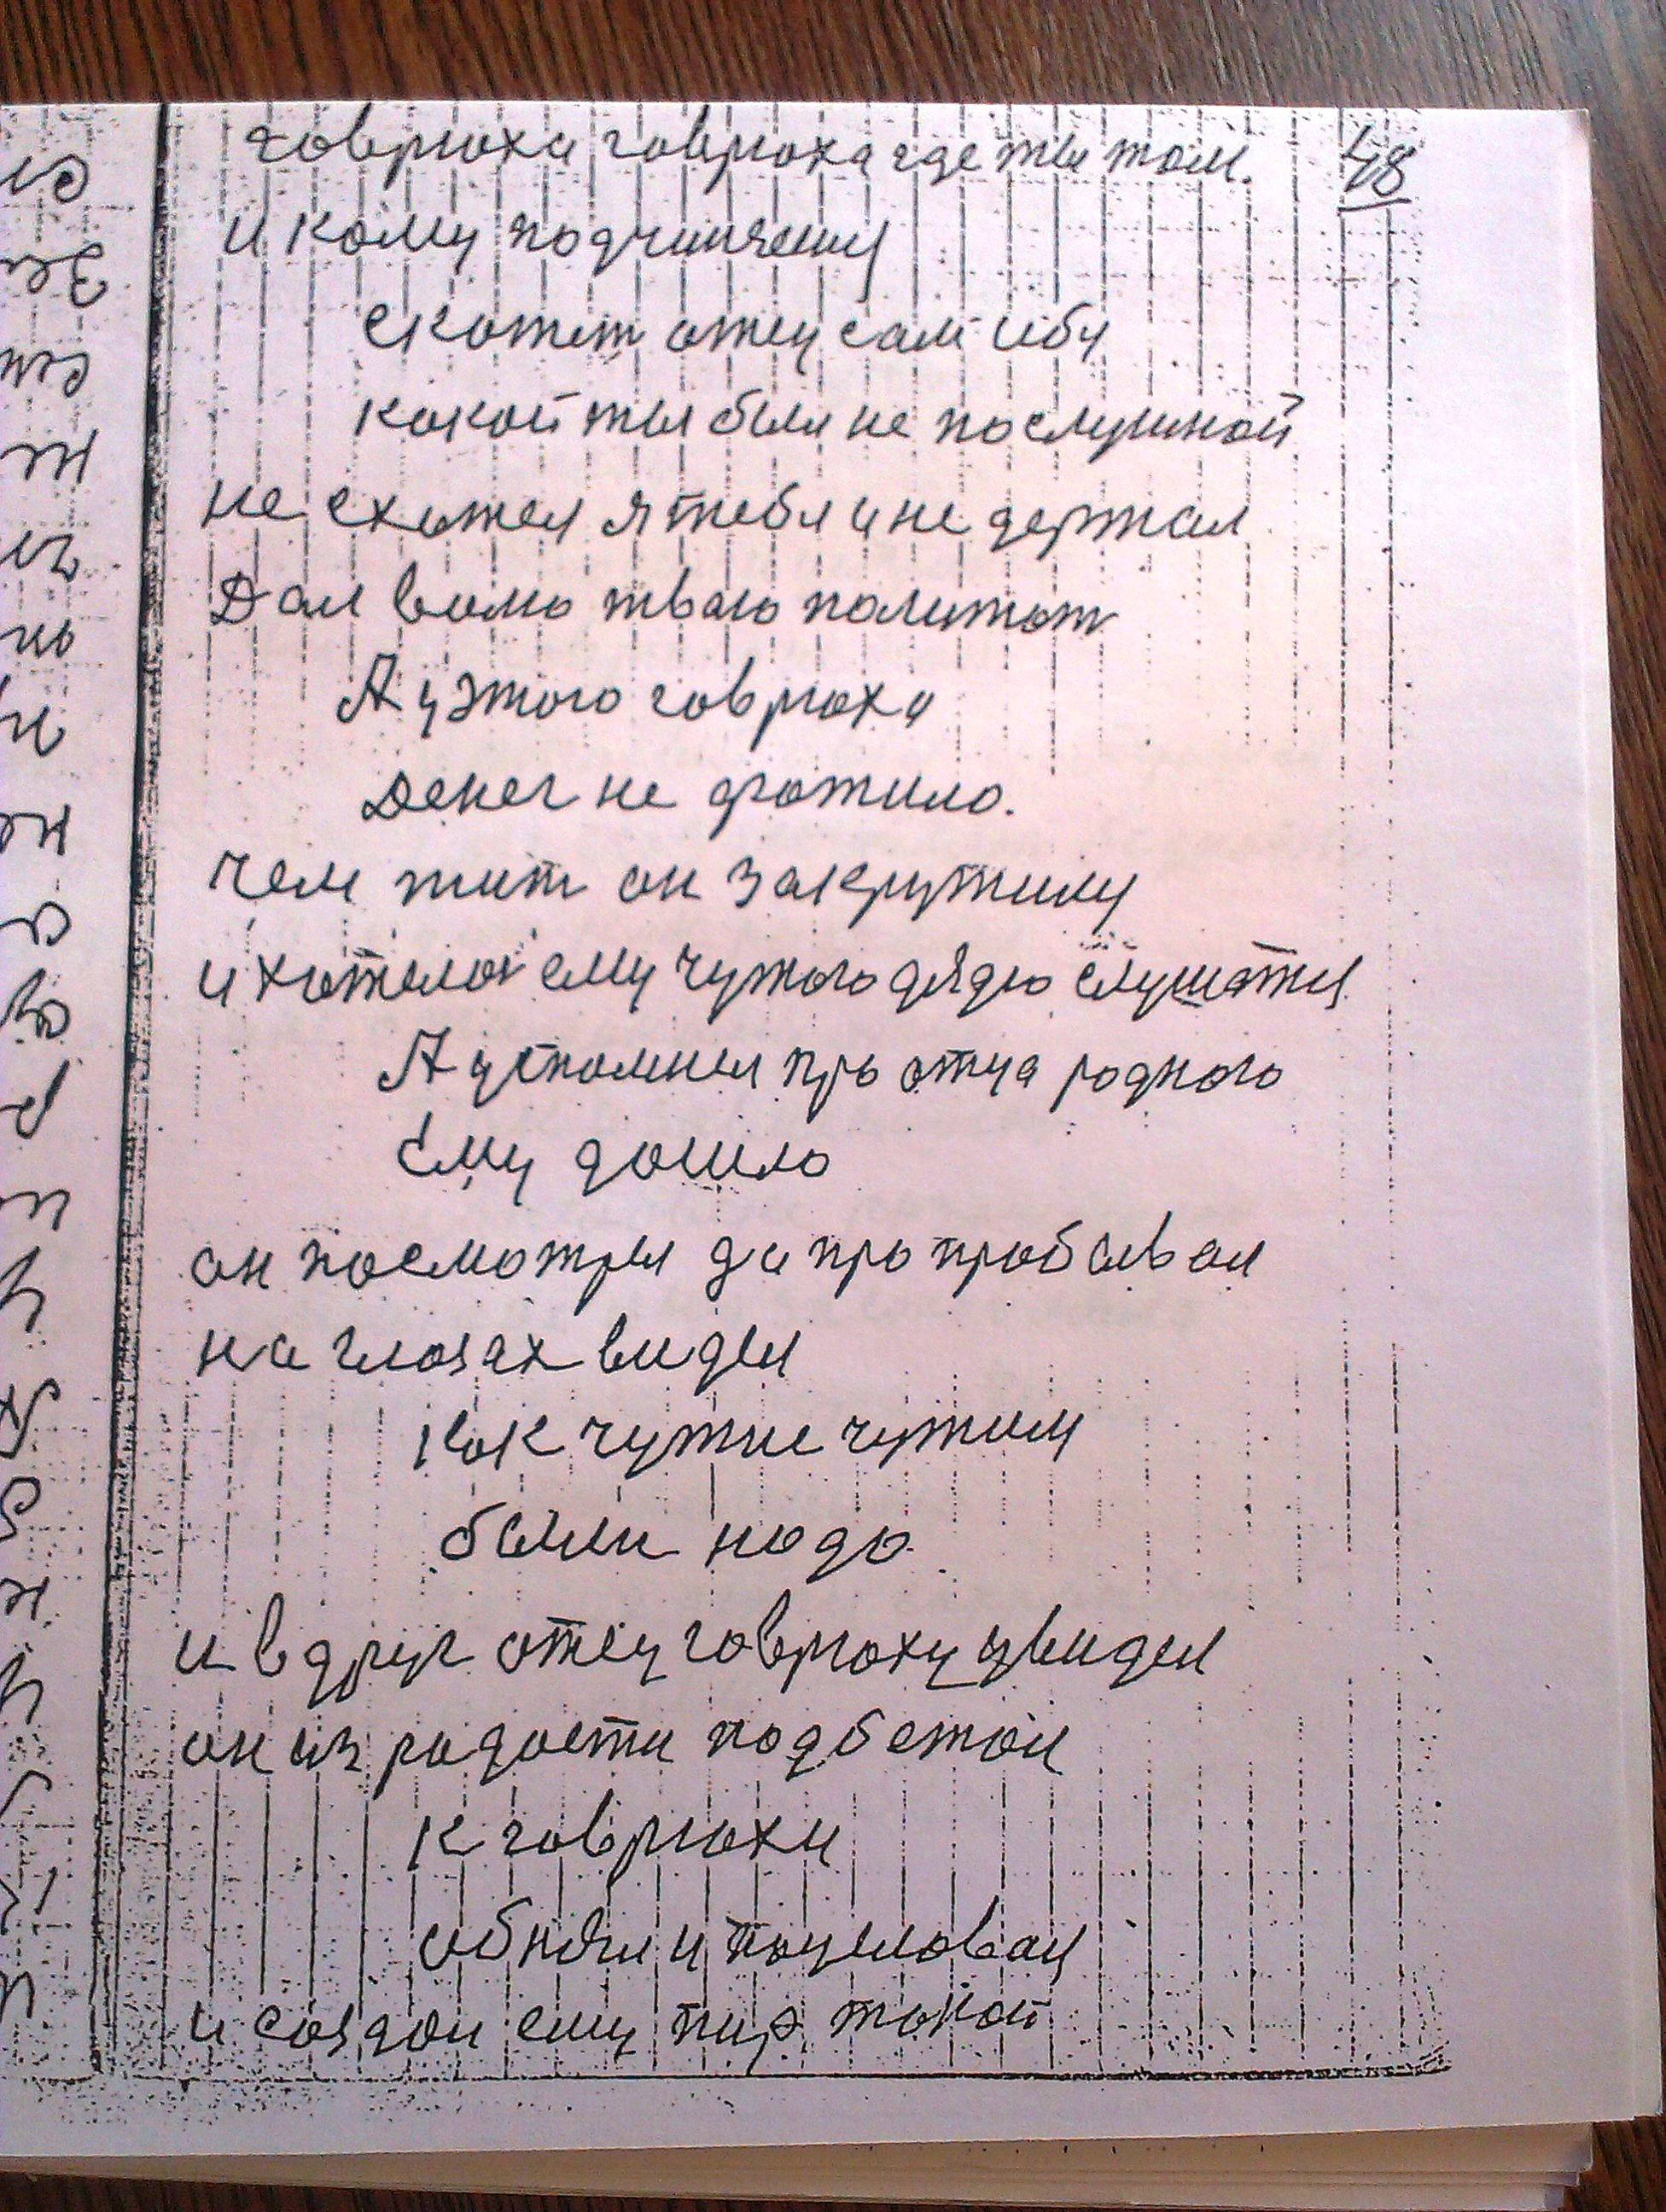 говрюха говрюха где ты там. 48
и кому подчиняешу
скажет отец сам
какой ты был не послушной
не схотел я тебя и не держал
Дал волю тваю палитат
А у этого говрюха
Денег не хватило.
чем жит он закрутилу
и хотелос ему чужого дядю слушатя
А успомнил про отца родного
Ему дошло
он посмотрел да пропробавал
на глазах видел
как чужие чужим
были надо
и вдруг отец говрюху увидел
он из радости подбежал
к говрюхи
обнял и поцеловал
и создал ему пир такой